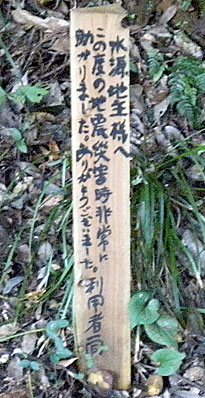 水源地主様へ
この度の地震災害時非常に
助かりました。ありがとうございました。利用者一同